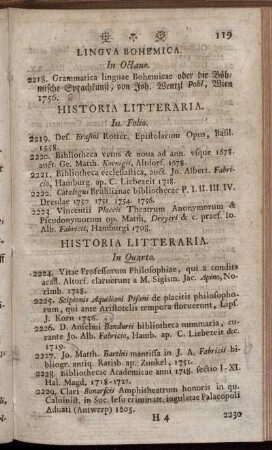 119
LINGVA BOHEMICA.
In Octavo.
2218. Grammatica linguae Bohemicae oder die Böh-
mische Sprachkunst, von Joh. Wentzl Pohl, Wien
1756.
HISTORIA LITTERARIA.
In Folio.
2219. Des. Erasmi Rotter. Epistolarum Opus, Basil.
1558.
2220. Bibliotheca vetus & noua ad ann. vsque 1678.
auct. Ge. Matth. Koenigii, Altdorf. 1678.
2221. Bibliotheca ecclesiastica, auct. Jo. Albert. Fabri-
cio, Hamburg. ap. C. Liebezeit 1718.
2222. Catalogus Bruhlianae bibliothecae P. I. II. III. IV.
Dresdae 1750 1751 1754. 1756.
2223. Vincentii Placcii Theatrum Anonymorum &
Pseudonymorum op. Matth. Dreyeri & c. praef. Io.
Alb. Fabricii, Hamburgi 1708.
HISTORIA LITTERARIA.
In Quarto.
2224. Vitae Professorum Philosophiae, qui a condita
acad. Altorf. claruerunt a M. Sigism. Jac. Apino, No-
rimb. 1728.
2225. Scipionis Aquiliani Pisani de placitis philosopho-
rum, qui ante Aristotelis tempora floruerunt, Lipf.
J. Korn 1756.
2226. D. Anselmi Bandurii bibliotheca nummaria, cu-
rante Jo. Alb. Fabricio, Hamb. ap. C. Liebezeit &c.
1719.
2227. Jo. Matth. Barthii mantissa in J. A. Fabricii bi-
bliogr. antiq. Ratisb. ap. Zunkel, 1751.
2228. Bibliothecae Academicae anni 1718. sectio I-XI.
Hal. Magd, 1718-1721.
2229. Clari Bonarscii Amphitheatrum honoris in qu.
Caluinist. in Soc. Iesu criminatt. jugulatae Palaeopoli
Aduati (Antwerp) 1605.
H 4
2230